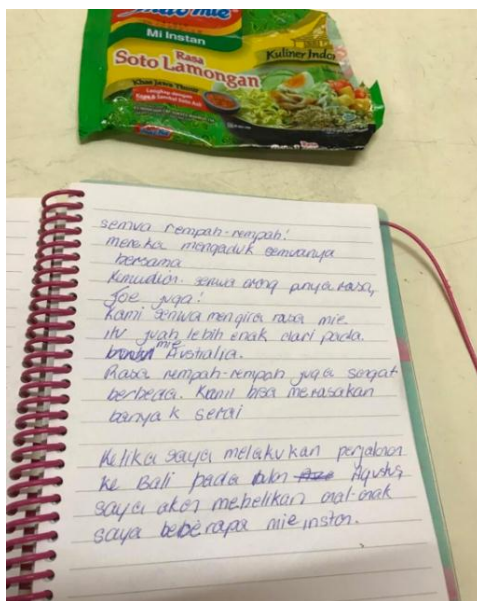 Indomie
Mi Instan
Rasa
Soto Lamongan
Kuliner Indo
Khas Jawa Timur
semua rempah-rempah!
mereka mengaduk semuanya
bersama
Kemudian semua orang punya rasa,
Joe juga!
Kami semua mengira rasa mie
itu juah lebih enak dari pada
mie Australia.
Rasa rempah-rempah juga sangat
berbeda. Kami bisa merasakan
banyak serai
Ketika saya melakukan perjalanan
ke Bali pada bulan Agustus
saya akan mebelikan anak-anak
saya beberapa mie instan.